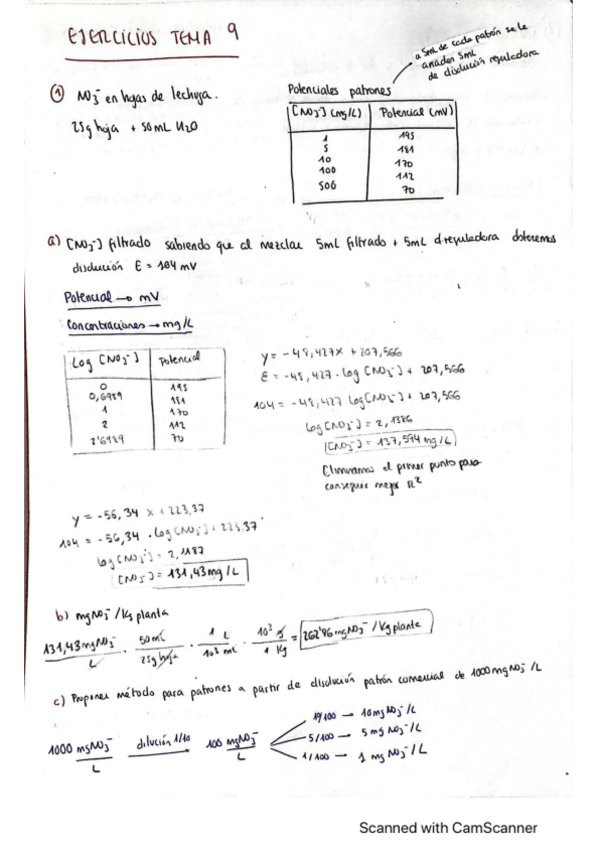 EJERCICIOS TEMA 9
a 5mL de cada patrón se le
añaden 5mL
de disolución reguladora
① NO₃⁻ en hojas de lechuga.
25g hoja + 50mL H₂O
Potenciales patrones
[NO₃⁻] (mg/L) Potencial (mV)
1 195
5 181
10 170
100 112
500 70
a) [NO₃⁻] filtrado sabiendo que al mezclar 5mL filtrado + 5mL d.reguladora obtenemos
disolución E = 104 mV
Potencial → mV
Concentraciones → mg/L
Log [NO₃⁻] Potencial
0 195
0,6989 181
1 170
2 112
2'6989 70
y = -48,427x + 207,566
E = -48,427 · log [NO₃⁻] + 207,566
104 = -48,427 log[NO₃⁻] + 207,566
log[NO₃⁻] = 2,1386
[NO₃⁻] = 137,594 mg/L
Eliminamos el primer punto para
conseguir mejor R²
y = -56,34 x + 223,37
104 = -56,34 · log[NO₃⁻] + 223,37
log[NO₃⁻] = 2,1187
[NO₃⁻] = 131,43 mg/L
b) mgNO₃⁻/Kg planta
131,43 mgNO₃⁻/L · 50mL/25g hoja · 1 L/10³ mL · 10³ g/1 Kg = 262'86 mgNO₃⁻/Kg planta
c) Proponer método para patrones a partir de disolución patrón comercial de 1000mgNO₃⁻/L
10/100 → 10mgNO₃⁻/L
1000 mgNO₃⁻/L dilución 1/10 → 100 mgNO₃⁻/L 5/100 → 5 mg NO₃⁻/L
1/100 → 1 mg NO₃⁻/L
Scanned with CamScanner